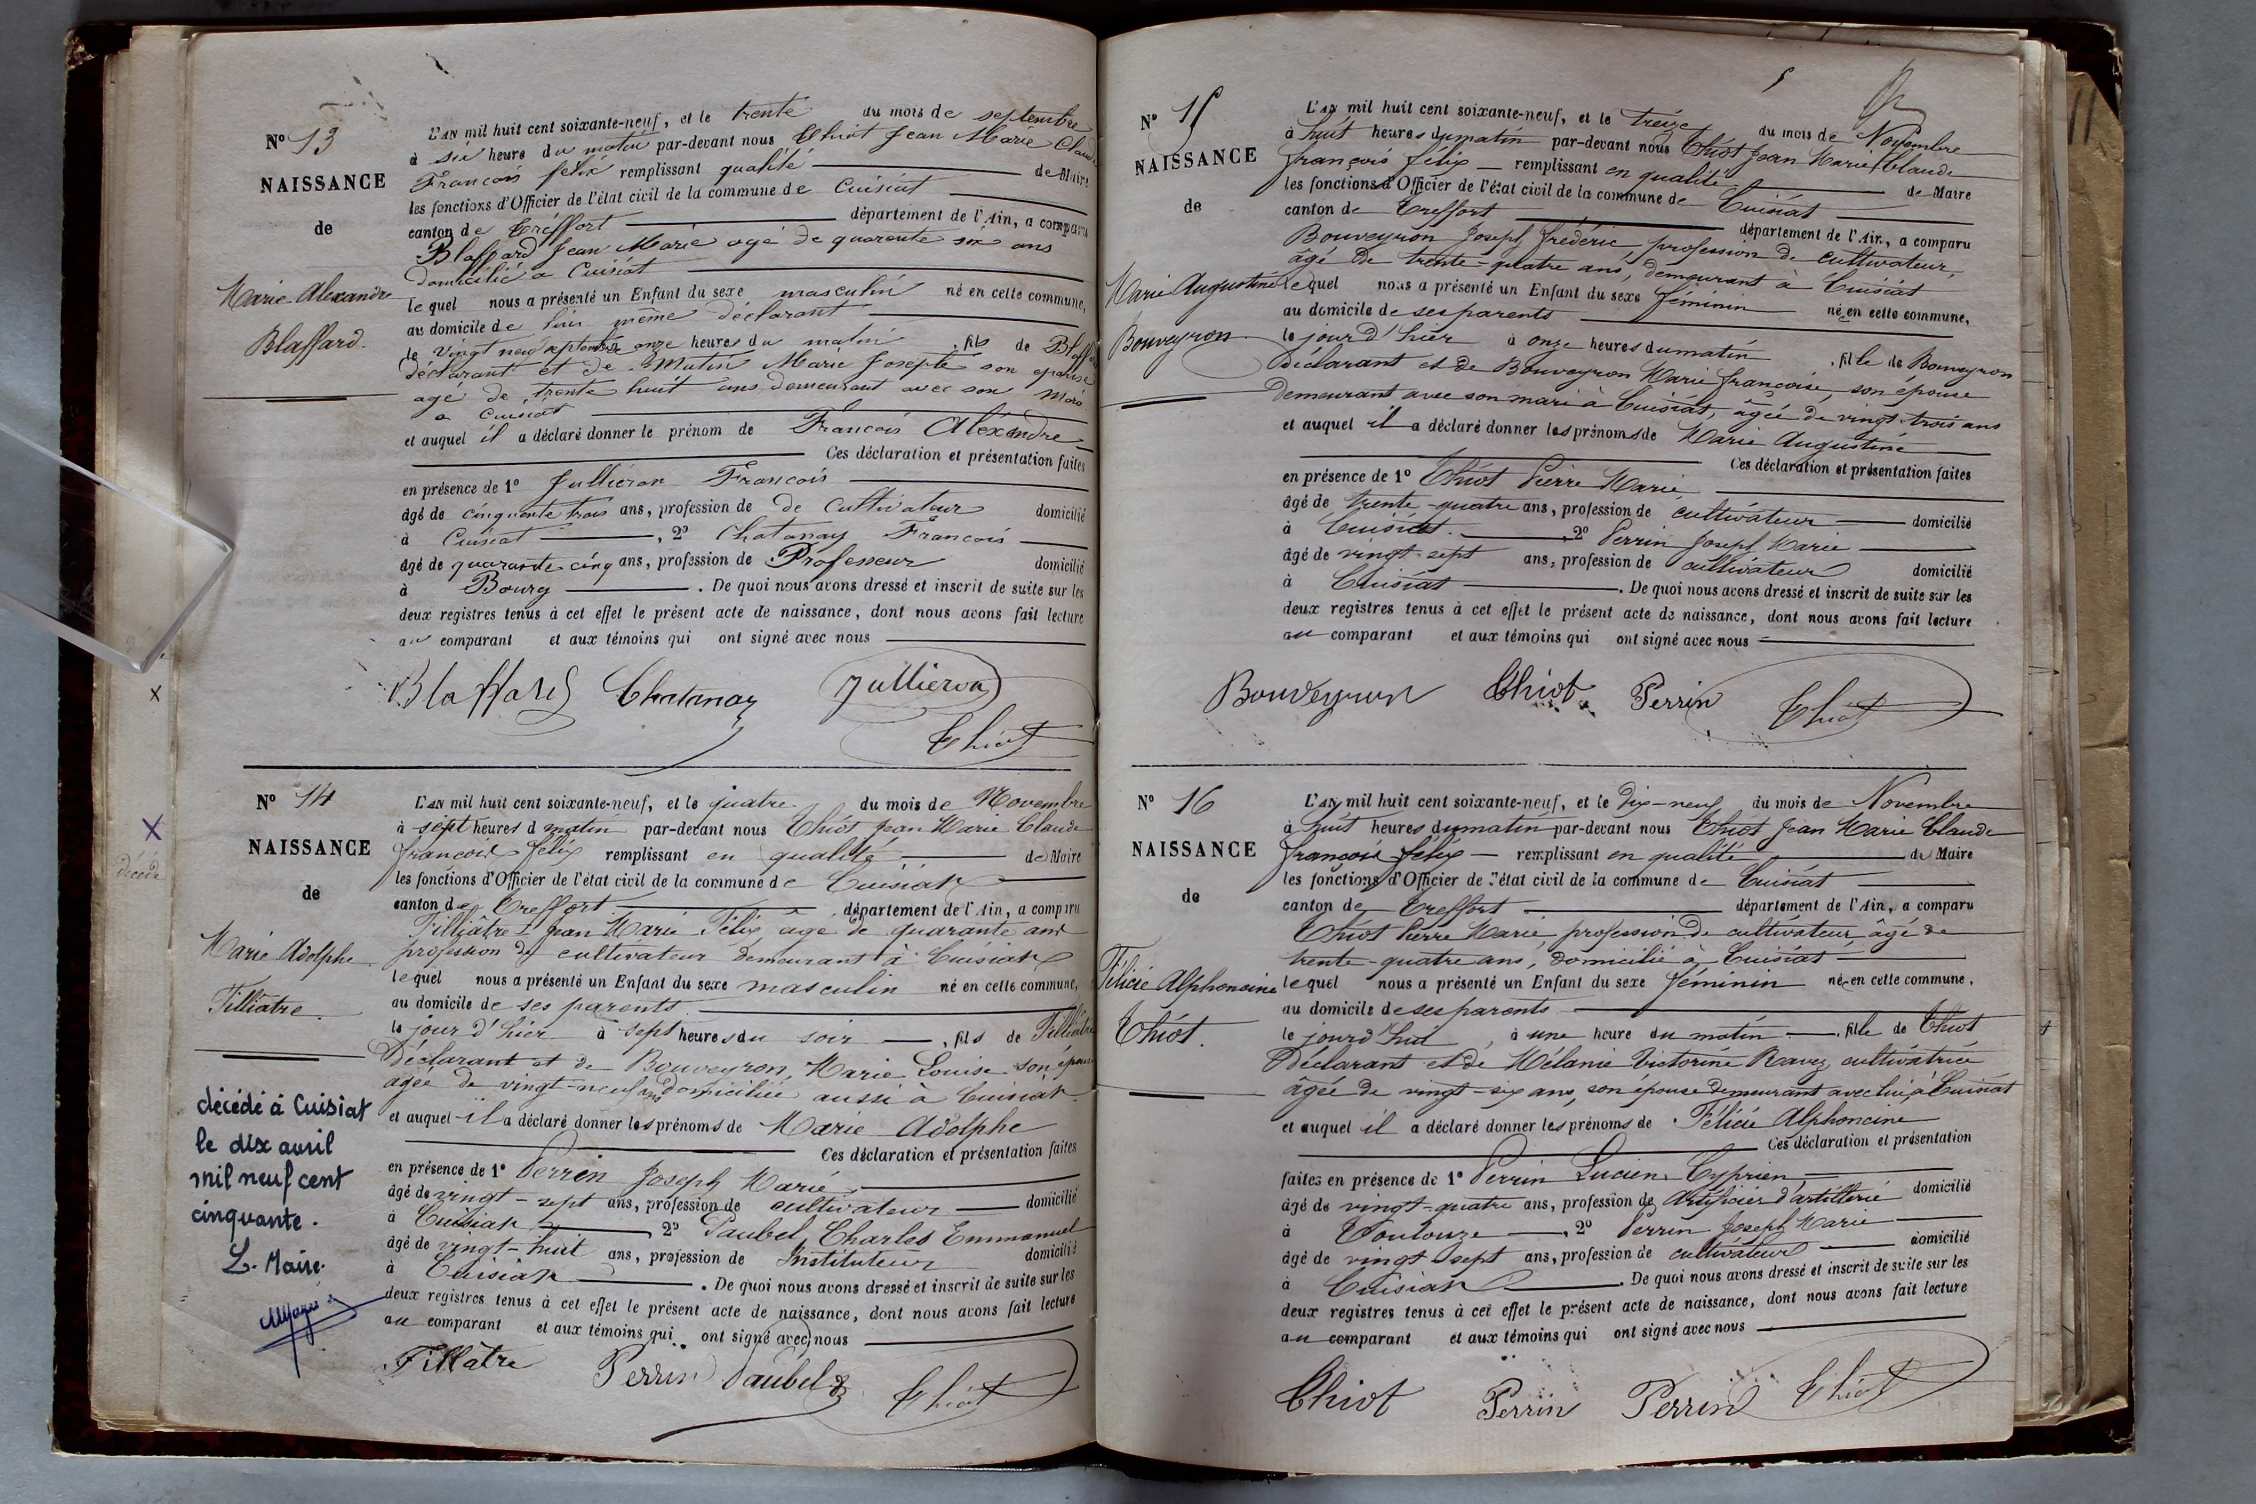 N° 13
NAISSANCE
de
Marie Alexandre
Blaffard.
L'AN mil huit cent soixante-neuf, et le trente du mois de septembre
à six heure du matin par-devant nous Thiot Jean Marie Claude
François felix remplissant qualité de Maire
les fonctions d'Officier de l'état civil de la commune de Cuisiat
canton de Tréffort département de l'Ain, a comparu
Blaffard Jean Marie agé de quarante six ans
domicilié a Cuisiat
lequel nous a présenté un Enfant du sexe masculin né en cette commune,
au domicile de lui même déclarant
le vingt neuf septembre onze heures du matin, fils de Blaffard
déclarant et de Mutin Marie Josephte son epouse
agé de trente huit ans demeurant avec son mari
a Cuisiat
et auquel il a déclaré donner le prénom de François Alexandre
Ces déclaration et présentation faites
en présence de 1° Jullieron François
âgé de cinquante trois ans, profession de de Cultivateur domicilié
à Cuisiat, 2° Chatanay François
âgé de quarante cinq ans, profession de Professeur domicilié
à Bourg. De quoi nous avons dressé et inscrit de suite sur les
deux registres tenus à cet effet le présent acte de naissance, dont nous avons fait lecture
au comparant et aux témoins qui ont signé avec nous
Blaffard Chatanay Jullieron
Thiot
N° 14
NAISSANCE
de
Marie Adolphe
Filliatre.
décédé à Cuisiat
le dix avril
mil neuf cent
cinquante.
L. Maire.
L'AN mil huit cent soixante-neuf, et le quatre du mois de Novembre
à sept heures d matin par-devant nous Thiot Jean Marie Claude
françois felix remplissant en qualité de Maire
les fonctions d'Officier de l'état civil de la commune de Cuisiat
canton de Treffort département de l'Ain, a comparu
Filliâtre Jean Marie Félix âgé de quarante ans
profession de cultivateur demeurant à Cuisiat
lequel nous a présenté un Enfant du sexe masculin né en cette commune,
au domicile de ses parents
le jour d'hier à sept heures du soir, fils de Filliâtre
Déclarant et de Bouveyron, Marie Louise son épouse
agée de vingt-neuf ans domiciliée aussi à Cuisiat
et auquel il a déclaré donner les prénoms de Marie Adolphe
Ces déclaration et présentation faites
en présence de 1° Perrin Joseph Marie
âgé de vingt-sept ans, profession de cultivateur domicilié
à Cuisiat, 2° Paubel Charles Emmanuel
âgé de vingt-huit ans, profession de Instituteur domicilié
à Cuisiat. De quoi nous avons dressé et inscrit de suite sur les
deux registres tenus à cet effet le présent acte de naissance, dont nous avons fait lecture
au comparant et aux témoins qui ont signé avec nous
Fillâtre Perrin Paubel Thiot
N° 15
NAISSANCE
de
Marie Augustine
Bouveyron
L'AN mil huit cent soixante-neuf, et le treize du mois de Novembre
à huit heures du matin par-devant nous Thiot Jean Marie Claude
françois félix remplissant en qualité de Maire
les fonctions d'Officier de l'état civil de la commune de Cuisiat
canton de Treffort département de l'Ain, a comparu
Bouveyron Joseph frédéric, profession de cultivateur,
âgé de trente-quatre ans, demeurant à Cuisiat
lequel nous a présenté un Enfant du sexe féminin née en cette commune,
au domicile de ses parents
le jour d'hier à onze heures du matin, fille de Bouveyron
déclarant et de Bouveyron Marie françoise, son épouse
demeurant avec son mari à Cuisiat, âgée de vingt-trois ans
et auquel il a déclaré donner les prénoms de Marie Augustine
Ces déclaration et présentation faites
en présence de 1° Thiot Pierre Marie
âgé de trente-quatre ans, profession de cultivateur domicilié
à Cuisiat. 2° Perrin Joseph Marie
âgé de vingt-sept ans, profession de cultivateur domicilié
à Cuisiat. De quoi nous avons dressé et inscrit de suite sur les
deux registres tenus à cet effet le présent acte de naissance, dont nous avons fait lecture
au comparant et aux témoins qui ont signé avec nous
Bouveyron Thiot Perrin Thiot
N° 16
NAISSANCE
de
Félicie Alphoncine
Thiot.
L'AN mil huit cent soixante-neuf, et le Dix-neuf du mois de Novembre
à huit heures du matin par-devant nous Thiot Jean Marie Claude
françois félix remplissant en qualité de Maire
les fonctions d'Officier de l'état civil de la commune de Cuisiat
canton de Treffort département de l'Ain, a comparu
Thiot Pierre Marie, profession de cultivateur, âgé de
trente-quatre ans, domicilié à Cuisiat
lequel nous a présenté un Enfant du sexe féminin née en cette commune,
au domicile de ses parents
le jourd'hui, à une heure du matin, fille de Thiot
Déclarant et de Mélanie Victorine Ravez cultivatrice
âgée de vingt-six ans, son épouse demeurant avec lui à Cuisiat
et auquel il a déclaré donner les prénoms de Félicie Alphoncine
Ces déclaration et présentation
faites en présence de 1° Perrin Lucien Cyprien
âgé de vingt-quatre ans, profession de Artificier d'artillerie domicilié
à Toulouze, 2° Perrin Joseph Marie
âgé de vingt-sept ans, profession de cultivateur domicilié
à Cuisiat. De quoi nous avons dressé et inscrit de suite sur les
deux registres tenus à cet effet le présent acte de naissance, dont nous avons fait lecture
au comparant et aux témoins qui ont signé avec nous
Thiot Perrin Perrin Thiot